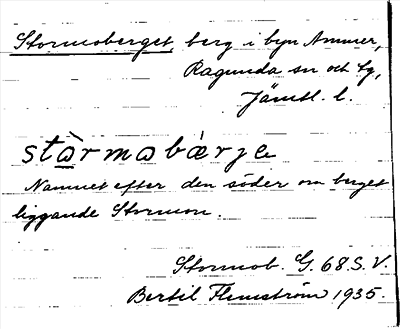 Stormoberget, berg i byn Ammer,
Ragunda sn och tg,
Jämtl. l.
stɷ̀rmɷbæ̀rje
Namnet efter den söder om berget
liggande Stormon.
Stormob. G. 68 S. V.
Bertil Flemström 1935.